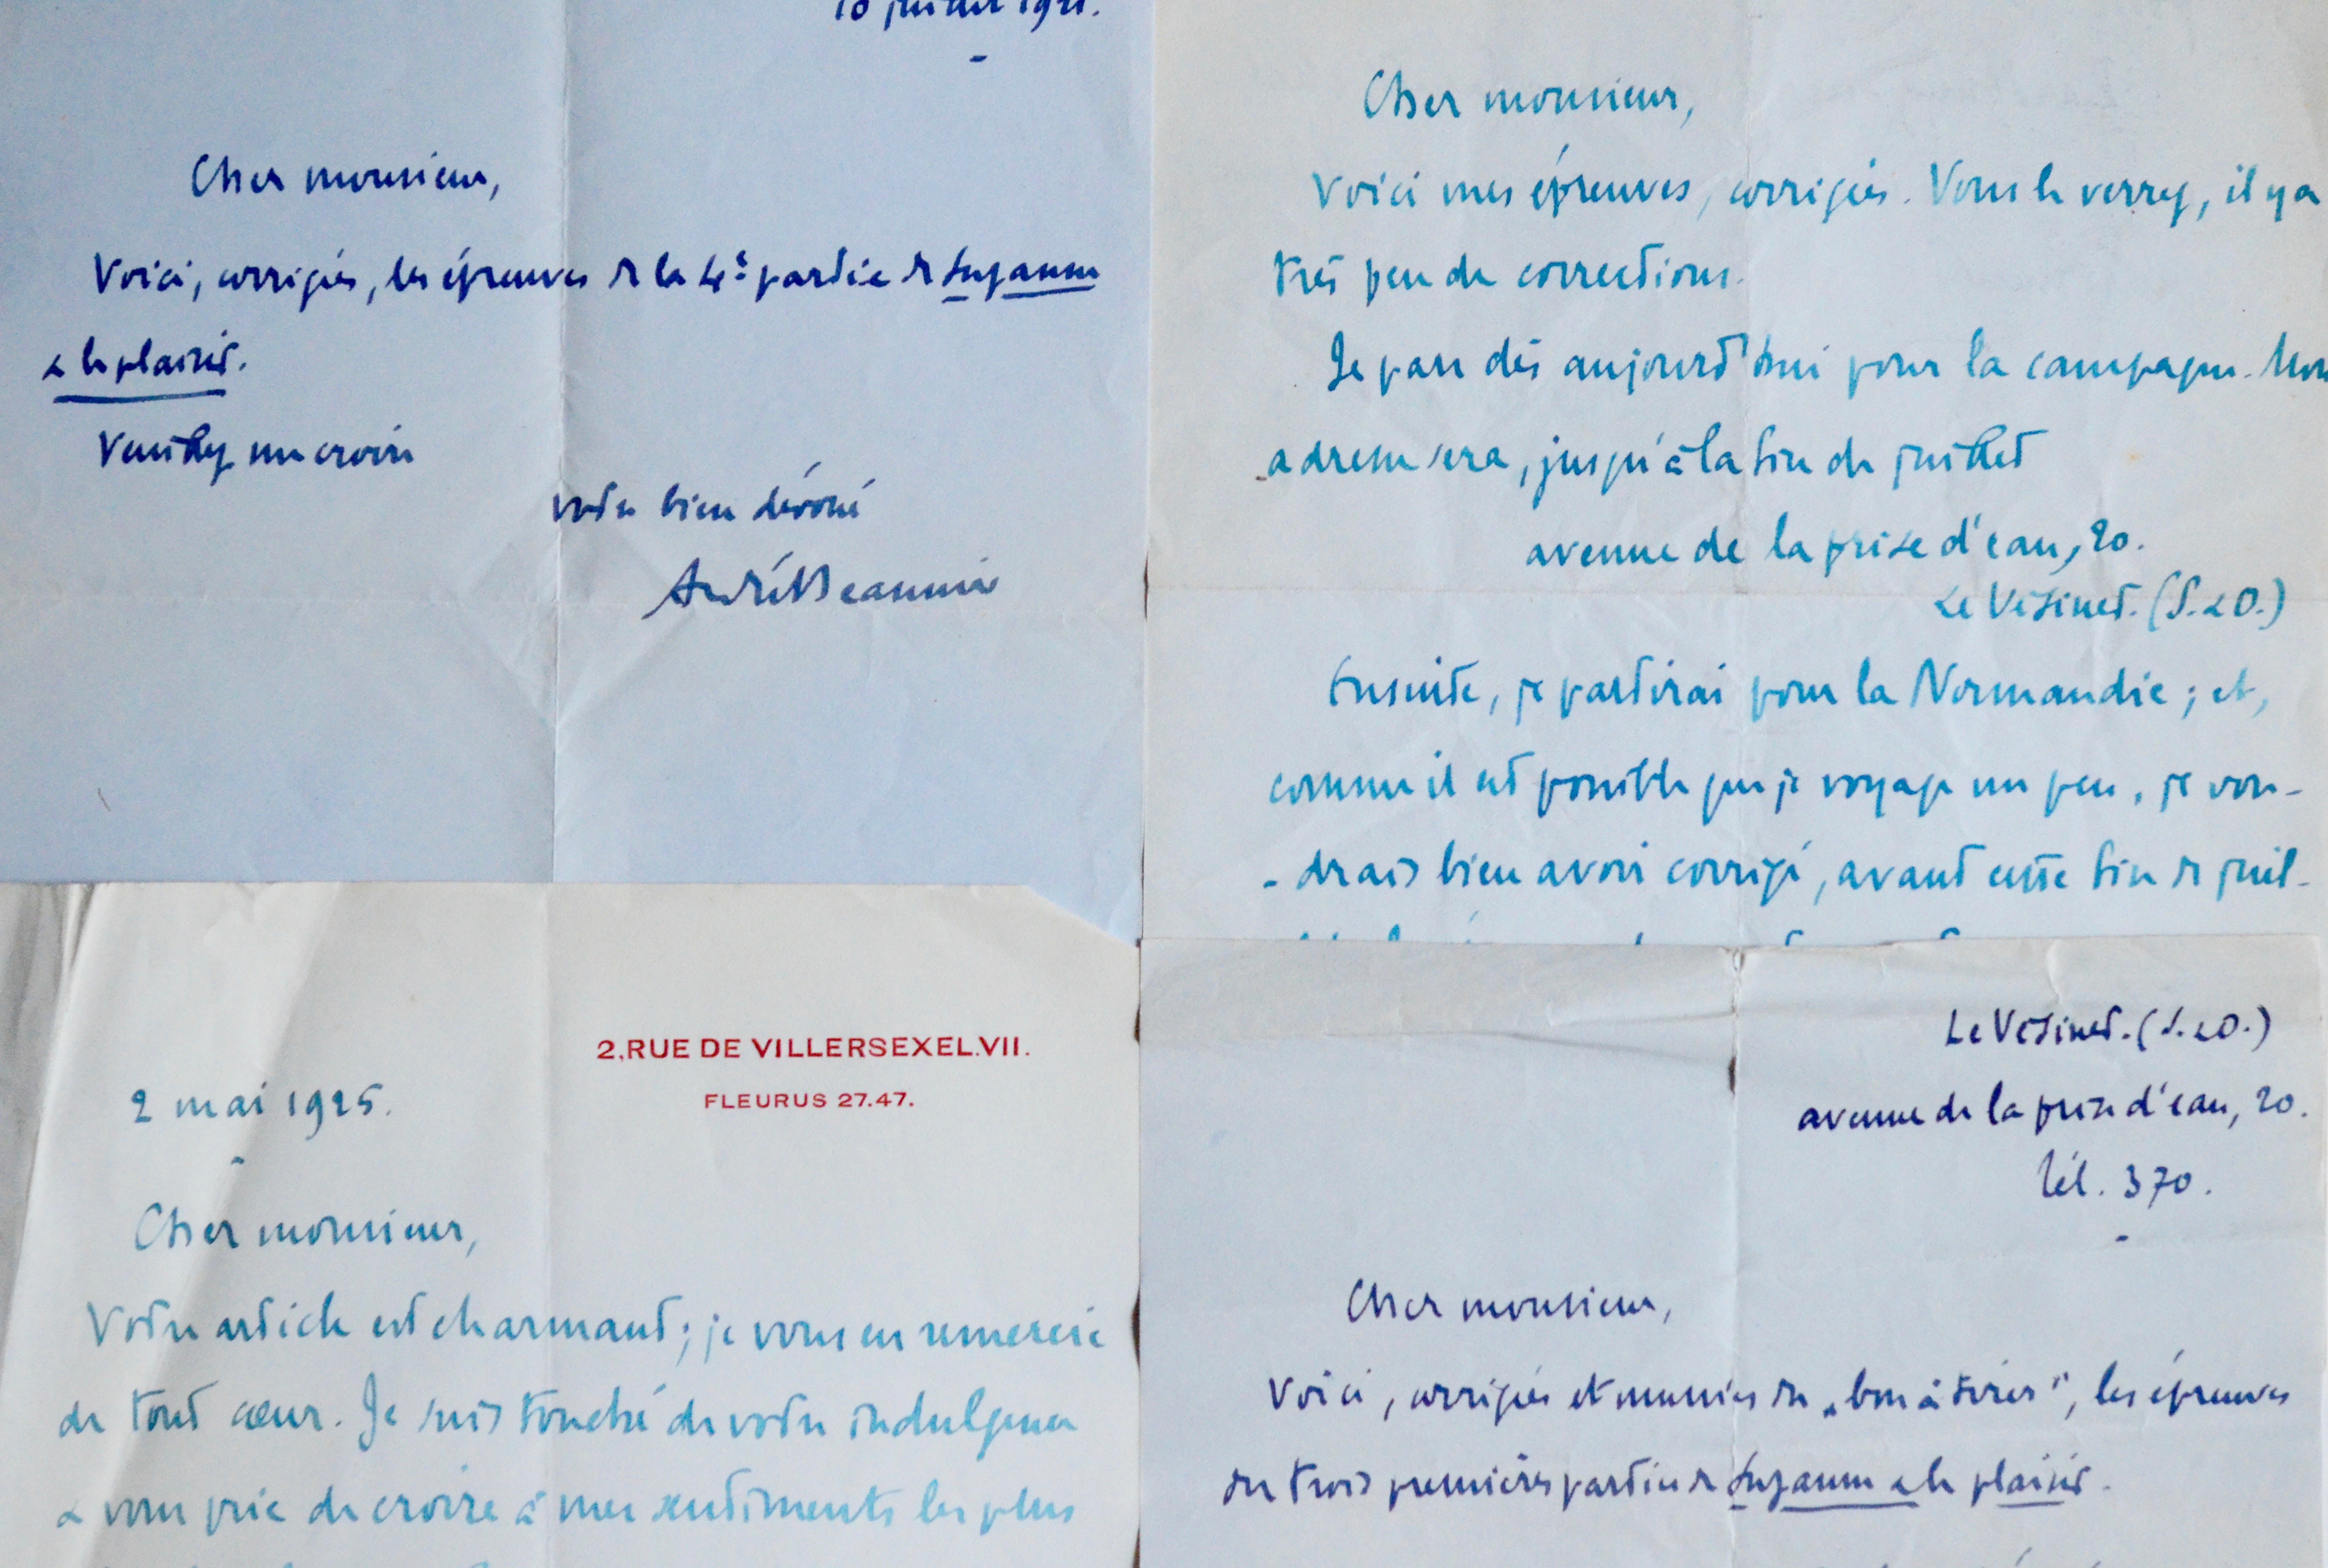 10 juillet 1921.
Cher monsieur,
Voici, corrigées, les épreuves de la 4e partie de Suzanne
et le plaisir.
Veuillez me croire
votre bien dévoué
André Beaunier
Cher monsieur,
Voici mes épreuves, corrigées. Vous le verrez, il y a
très peu de corrections.
Je pars dès aujourd'hui pour la campagne. Mon
adresse sera, jusqu'à la fin de juillet
avenue de la prise d'eau, 20.
Le Vésinet. (S.&O.)
Ensuite, je partirai pour la Normandie ; et,
comme il est possible que je voyage un peu, je vou-
-drais bien avoir corrigé, avant cette fin de juil-
2, RUE DE VILLERSEXEL. VII.
FLEURUS 27.47.
2 mai 1925.
Cher monsieur,
Votre article est charmant ; je vous en remercie
de tout cœur. Je suis touché de votre indulgence
& vous prie de croire à mes sentiments les plus
Le Vésinet. (S.&O.)
avenue de la prise d'eau, 20.
Tél. 370.
Cher monsieur,
Voici, corrigées et munies du „bon à tirer", les épreuves
des trois premières parties de Suzanne & le plaisir.